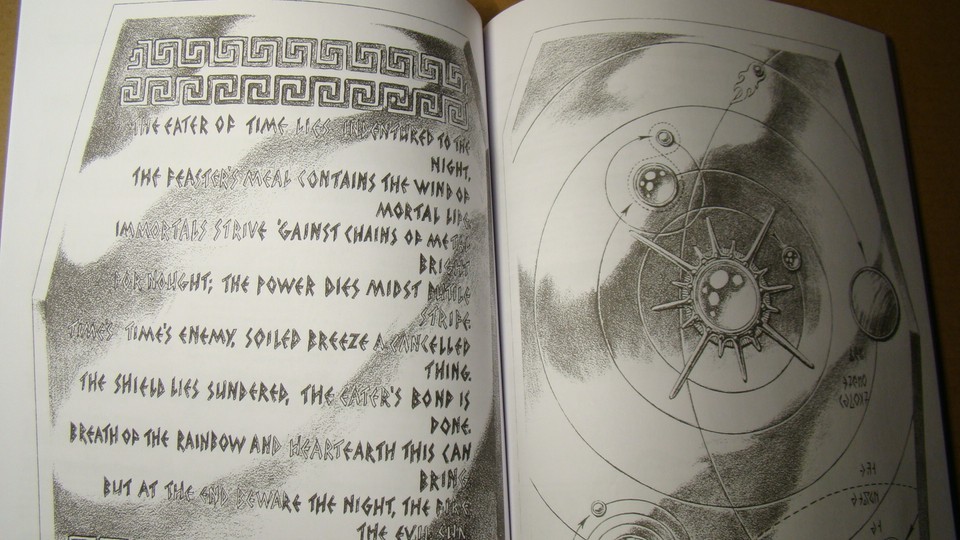 THE EATER OF TIME LIES INDENTURED TO THE
NIGHT,
THE FEASTER'S MEAL CONTAINS THE WIND OF
MORTAL LIFE.
IMMORTALS STRIVE 'GAINST CHAINS OF METAL
BRIGHT
FOR NOUGHT; THE POWER DIES MIDST FUTILE
STRIFE.
TIME'S TIME'S ENEMY, SOILED BREEZE A CANCELLED
THING.
THE SHIELD LIES SUNDERED, THE EATER'S BOND IS
DONE.
BREATH OF THE RAINBOW AND HEARTEARTH THIS CAN
BRING
BUT AT THE END BEWARE THE NIGHT, THE FIRE
THE EVIL